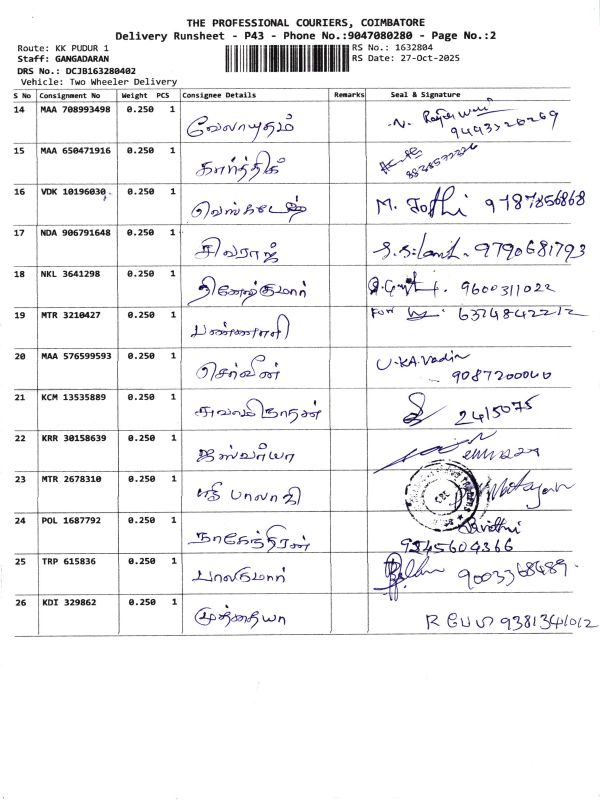 THE PROFESSIONAL COURIERS, COIMBATORE
Delivery Runsheet - P43 - Phone No.:9047080280 - Page No.:2
Route: KK PUDUR 1 RS No.: 1632804
Staff: GANGADARAN RS Date: 27-Oct-2025
DRS No.: DCJB163280402
Vehicle: Two Wheeler Delivery
S No Consignment No Weight PCS Consignee Details Remarks Seal & Signature
14 MAA 708993498 0.250 1
வேலாயுதம்
15 MAA 650471916 0.250 1
கார்த்திக்
16 VDK 10196030 0.250 1
வெங்கடேஷ் M. Jothi 9787856868
17 NDA 906791648 0.250 1
சிவராஜ் 9790681793
18 NKL 3641298 0.250 1
தினேஷ்குமார் 9600311022
19 MTR 3210427 0.250 1 For 6374842212
20 MAA 576599593 0.250 1
செர்வின் 9087200040
21 KCM 13535889 0.250 1
சுவாமிநாதன் 2415075
22 KRR 30158639 0.250 1
ஐஸ்வர்யா
23 MTR 2678310 0.250 1
ஸ்ரீ பாலாஜி
24 POL 1687792 0.250 1
நாகேந்திரன் 9345604366
25 TRP 615836 0.250 1
பாலகுமார் 9003368489
26 KDI 329862 0.250 1
முத்தையா 9381341012